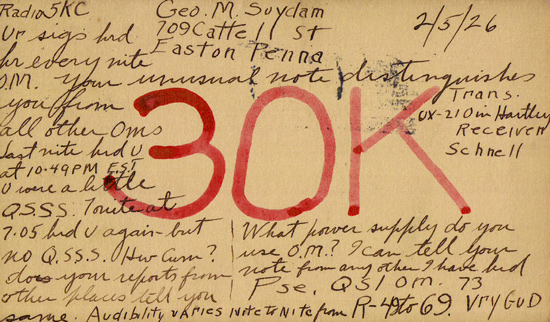 Radio 5KC
Geo. M. Suydam
709 Cattell St
Easton Penna
2/5/26
Ur sigs hrd
hr every nite
O.M. Your unusual note distinguishes
you from
all other Oms
Last nite hrd U
at 10.49 PM EST
U were a little
Q.S.S.S. Tonite at
7.05 hrd U again but
no Q.S.S.S. Hw Cum?
does your reports from
other places tell you
same.
Trans.
UX-210 in Hartley
Receiver
Schnell
30K
What power supply do you
use O.M.? I can tell your
note from any other I have hrd
Pse. QSL OM. 73
Audibility varies Nite to Nite from R-4 to 6 9. VRY GUD